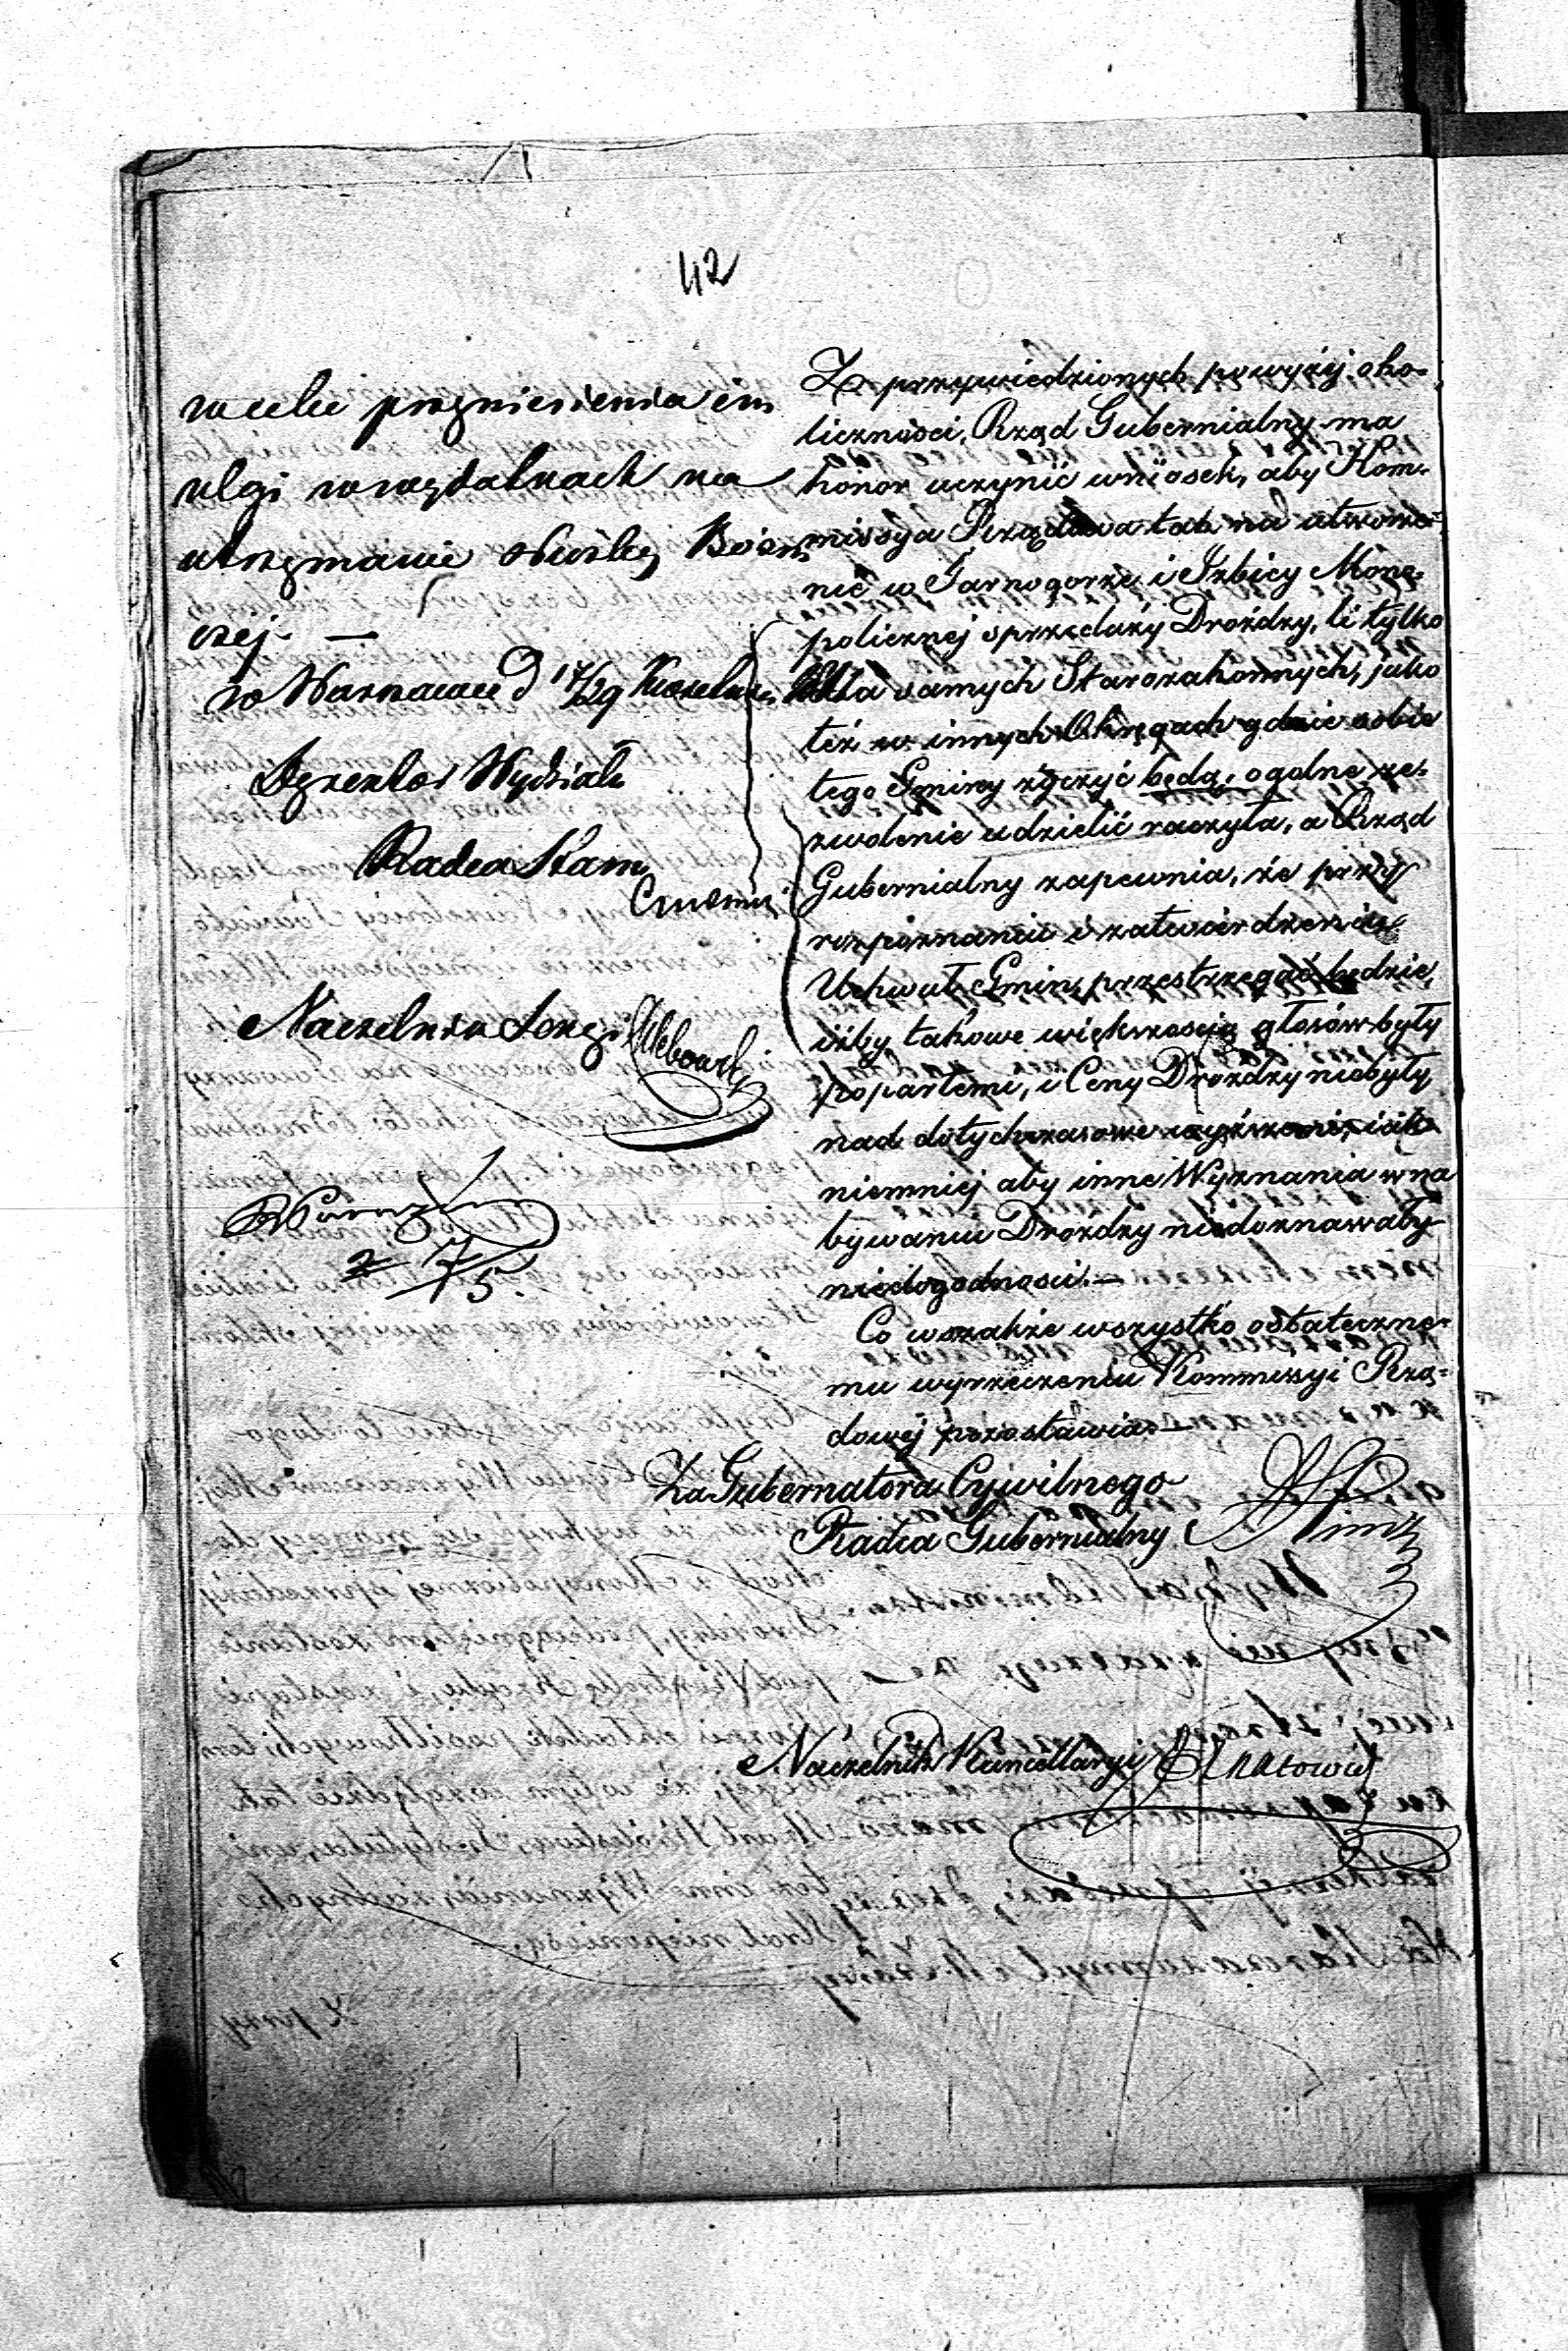 42
w celu przyniesienia im
ulgi w wydatkach na
utrzymanie służby Bożni
czej. —
w Warszawie d 17/29 Kwietnia
Dyrektor Wydziału
Radca Stanu
Naczelnik Sekcyi
Z przywiedzionych powyżej oko-
liczności, Rząd Gubernialny ma
honor uczynić wniosek, aby Kom-
missya Rządowa tak na utworze-
nie w Tarnogórze i Izbicy Mono-
policznej sprzedaży Drożdży, li tylko
dla samych Starozakonnych, jako
też w innych Okręgach gdzie sobie
tego Gminy życzyć będą, ogólne ze-
zwolenie udzielić raczyła, a Rząd
Gubernialny zapewnia, że przy
rozpoznaniu i zatwierdzeniu
Uchwał Gmin, przestrzegać będzie,
iżby takowe większością głosów były
popartemi, i Ceny Drożdży niebyły
nad dotychczasowe wyższemi,
niemniej aby inne Wyznania w na
bywaniu Drożdży niedoznawały
niedogodności. —
Co wszakże wszystko ostateczne-
mu wyrzeczeniu Kommissyi Rzą-
dowej pozostawia. —
Za Gubernatora Cywilnego
Radca Gubernialny
Naczelnik Kancellaryi